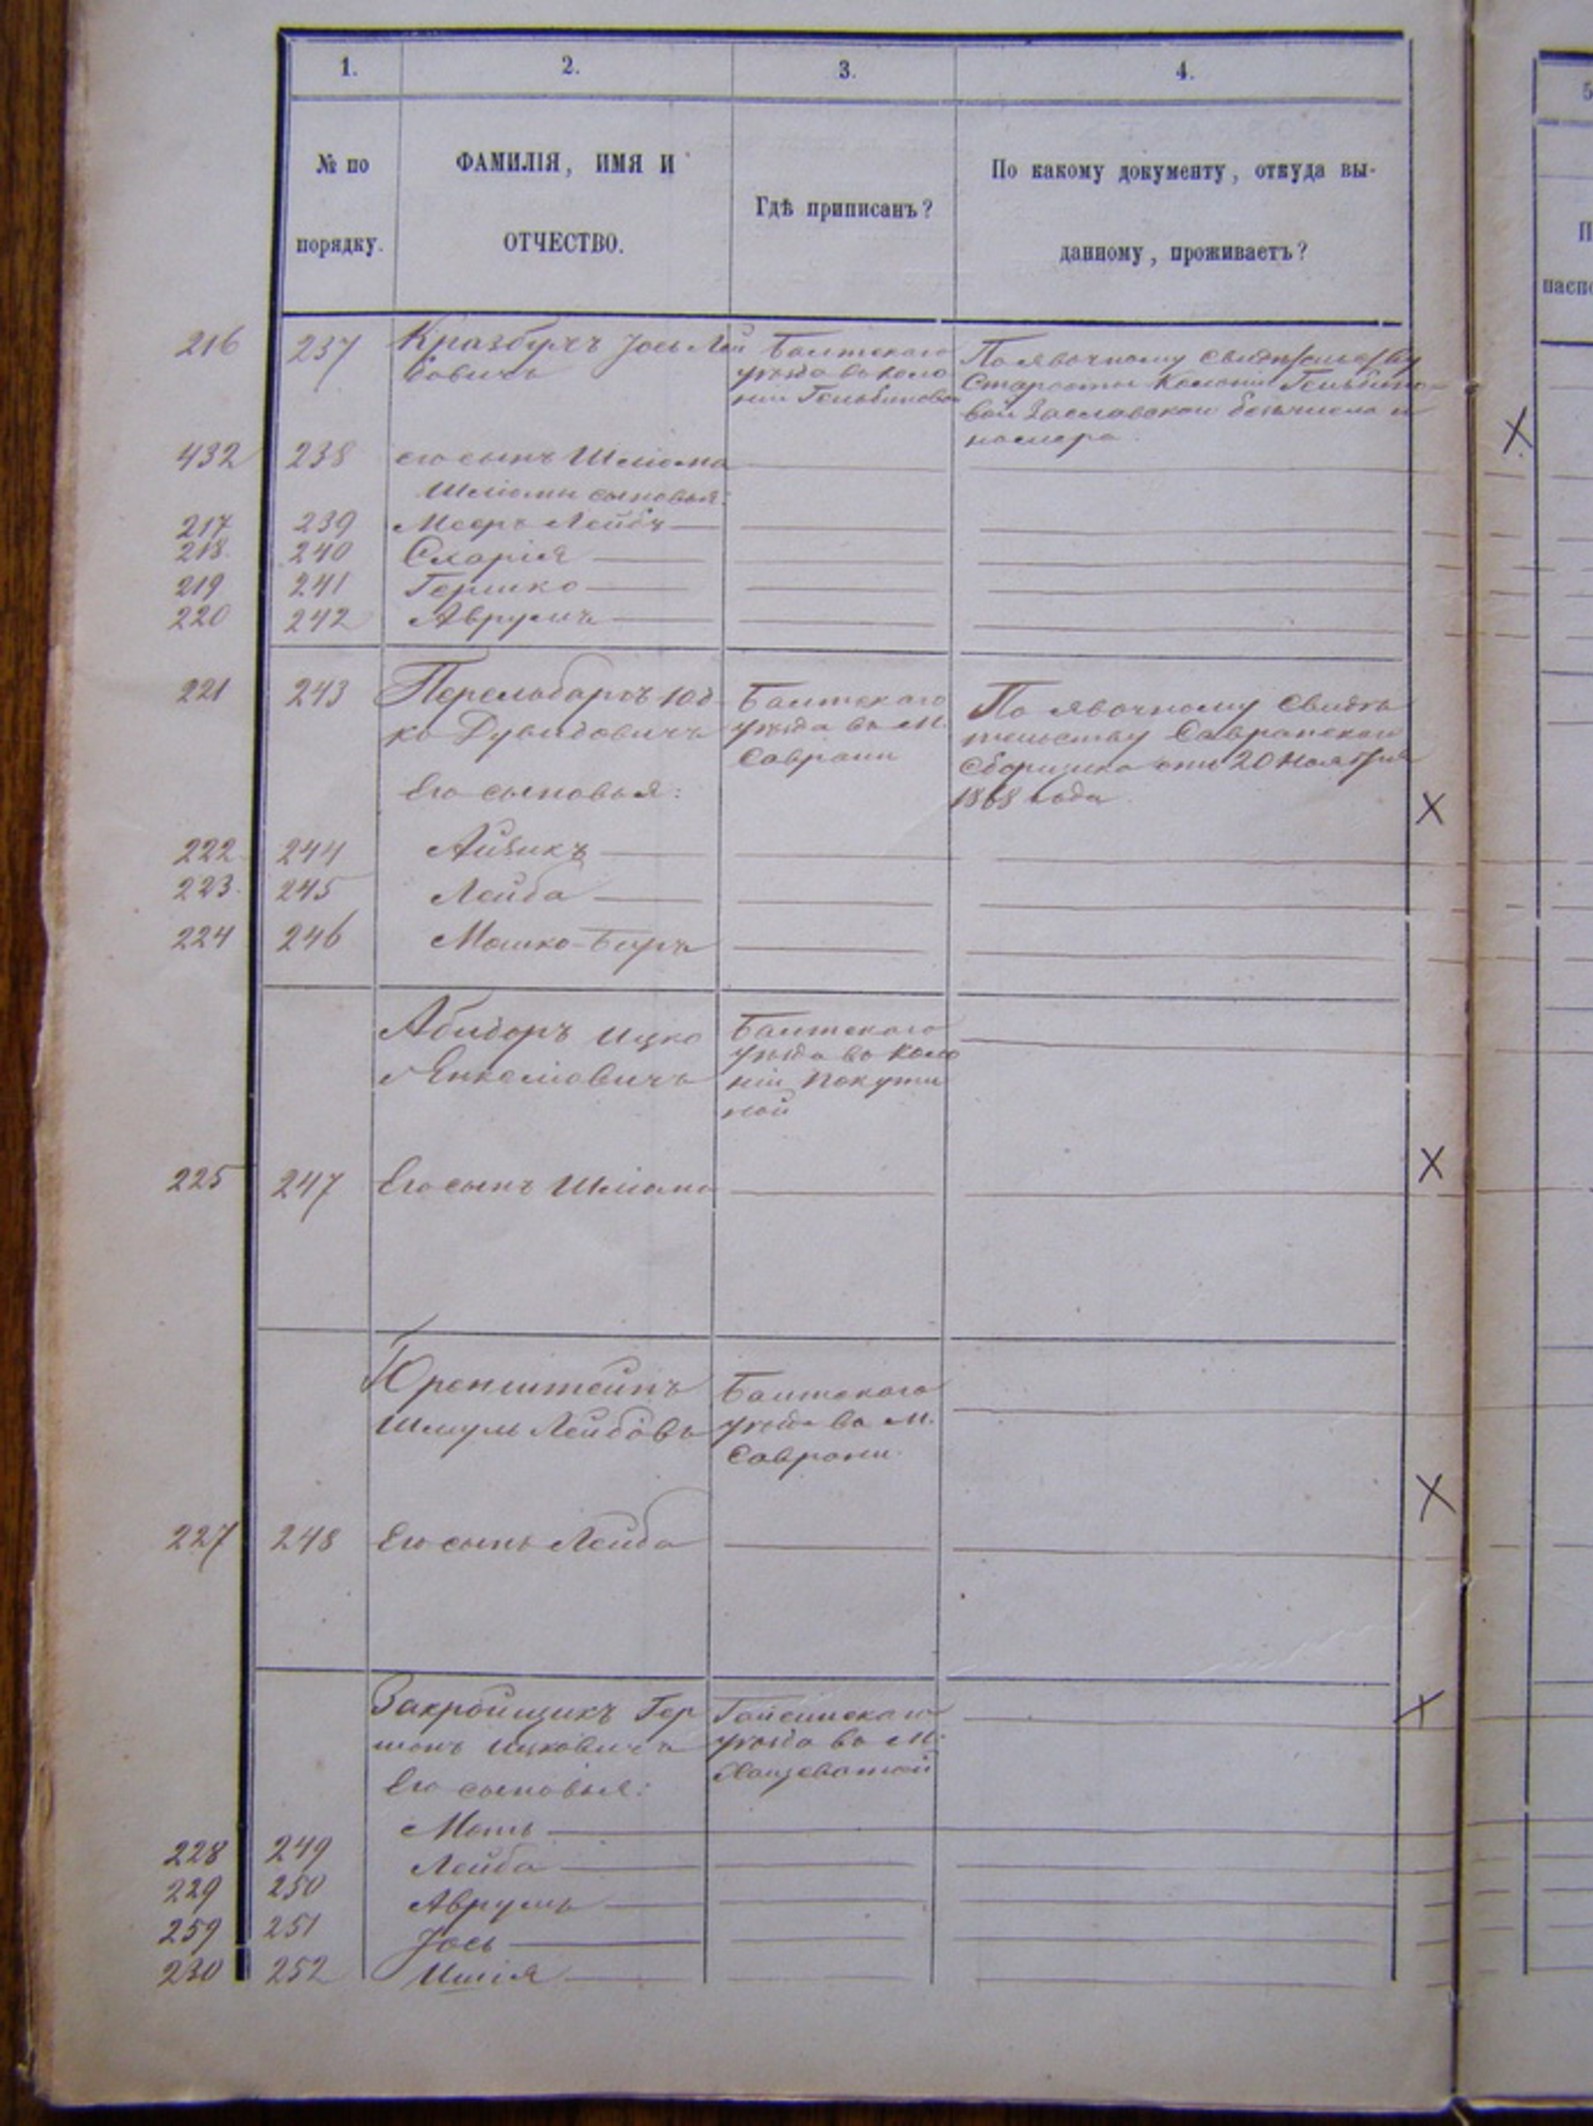 1. 2. 3. 4.
№ по порядку.
ФАМИЛІЯ, ИМЯ И ОТЧЕСТВО.
Гдѣ приписанъ?
По какому документу, откуда выданному, проживаетъ?
5
П
паспо
216 237 Іось Лей Балтскаго По явочному свидѣтельству
бовичъ уѣзда въ коло Старосты Колоніи
ніи безъ числа и
номера.
432 238 его сынъ Шліома
Шліомы сыновья:
217 239 Мееръ Лейбъ
218 240 Схарія
219 241 Гершко
220 242 Аврумъ
221 243 Перельбаръ Юд Балтскаго По явочному свидѣ
ко Дувидовичъ уѣзда въ м. тельству Савранскаго
Саврани Сборщика отъ 20 Ноября
Его сыновья: 1868 года
222 244 Айзикъ
223 245 Лейба
224 246 Мошко-Беръ
Абидоръ Ицко Балтскаго
Янкеліовичъ уѣзда въ Коло
ніи Покути
ной
225 247 Его сынъ Шліома
Юренштейнъ Балтскаго
Шмуль Лейбовъ уѣзда въ м.
Саврани
227 248 Его сынъ Лейба
Закройщикъ Гер Гайсинскаго
шонъ Ицковичъ уѣзда въ м.
Его сыновья: Хащеватой
Моть
228 249 Лейба
229 250 Аврумъ
259 251 Іось
230 252 Ишія